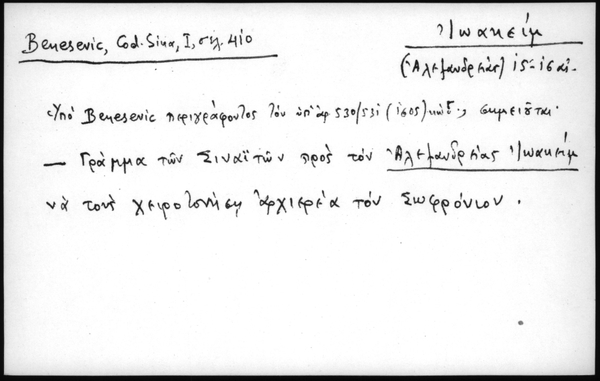 Benesevic, Cod. Sina, I, σελ. 410
Ἰωακείμ
(Ἀλεξανδρείας) ις-ισαι.
Ὑπό Benesevic περιγράφοντος τόν ὑπ' ἀρ 530/531 (ισος) κώδ., σημειοῦται·
— Γράμμα τῶν Σιναϊτῶν πρὸς τόν Ἀλεξανδρείας Ἰωακείμ
νὰ τοὺς χειροτονήσῃ ἀρχιερέα τόν Σωφρόνιον.